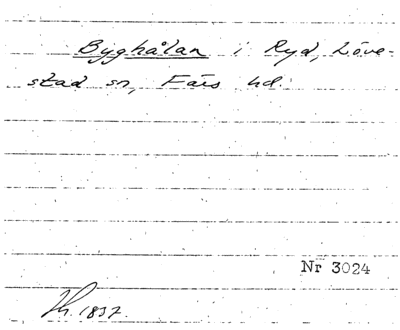 Byghålan i Ryd, Löve-
stad sn, Färs hd.
Nr 3024
1837.